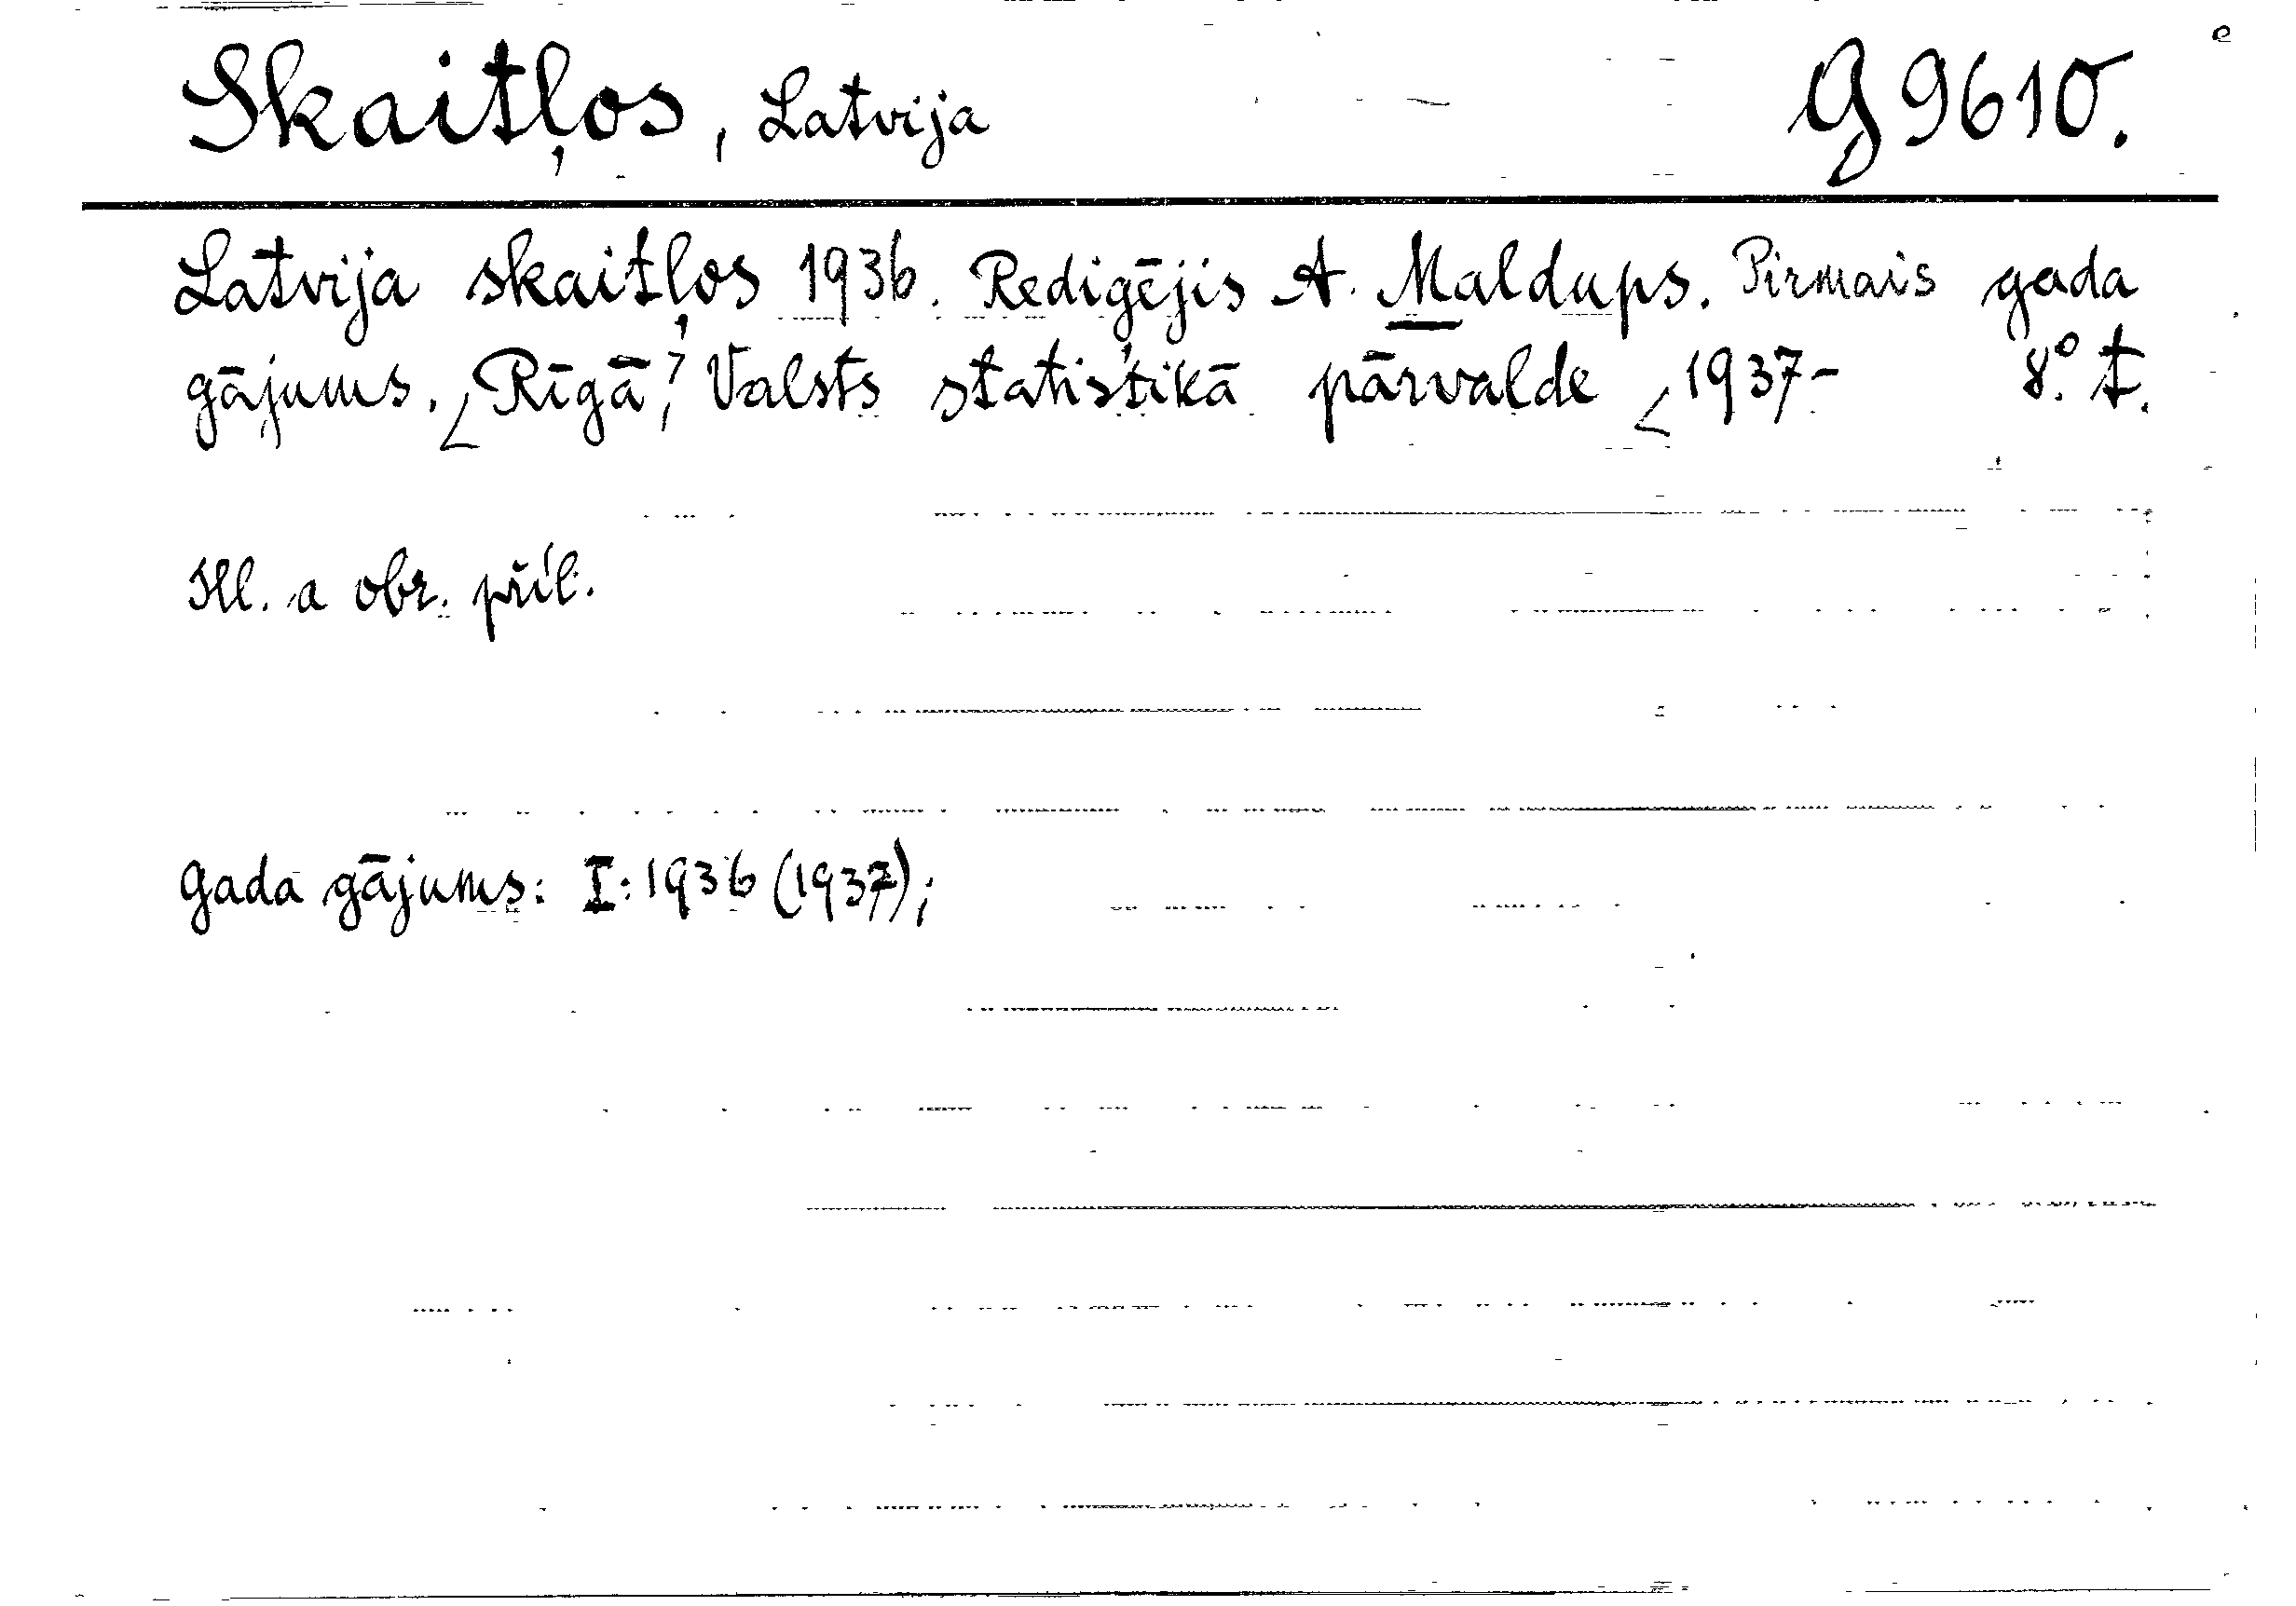 Skaitļos, Latvija G 9610.
Latvija skaitļos 1936. Rediģējis A. Maldups. Pirmais gada
gājums. Rīgā, Valsts statistikā pārvalde 1937- 8°. t.
Ill. a obr. příl.
Gada gājums: I: 1936 (1937);